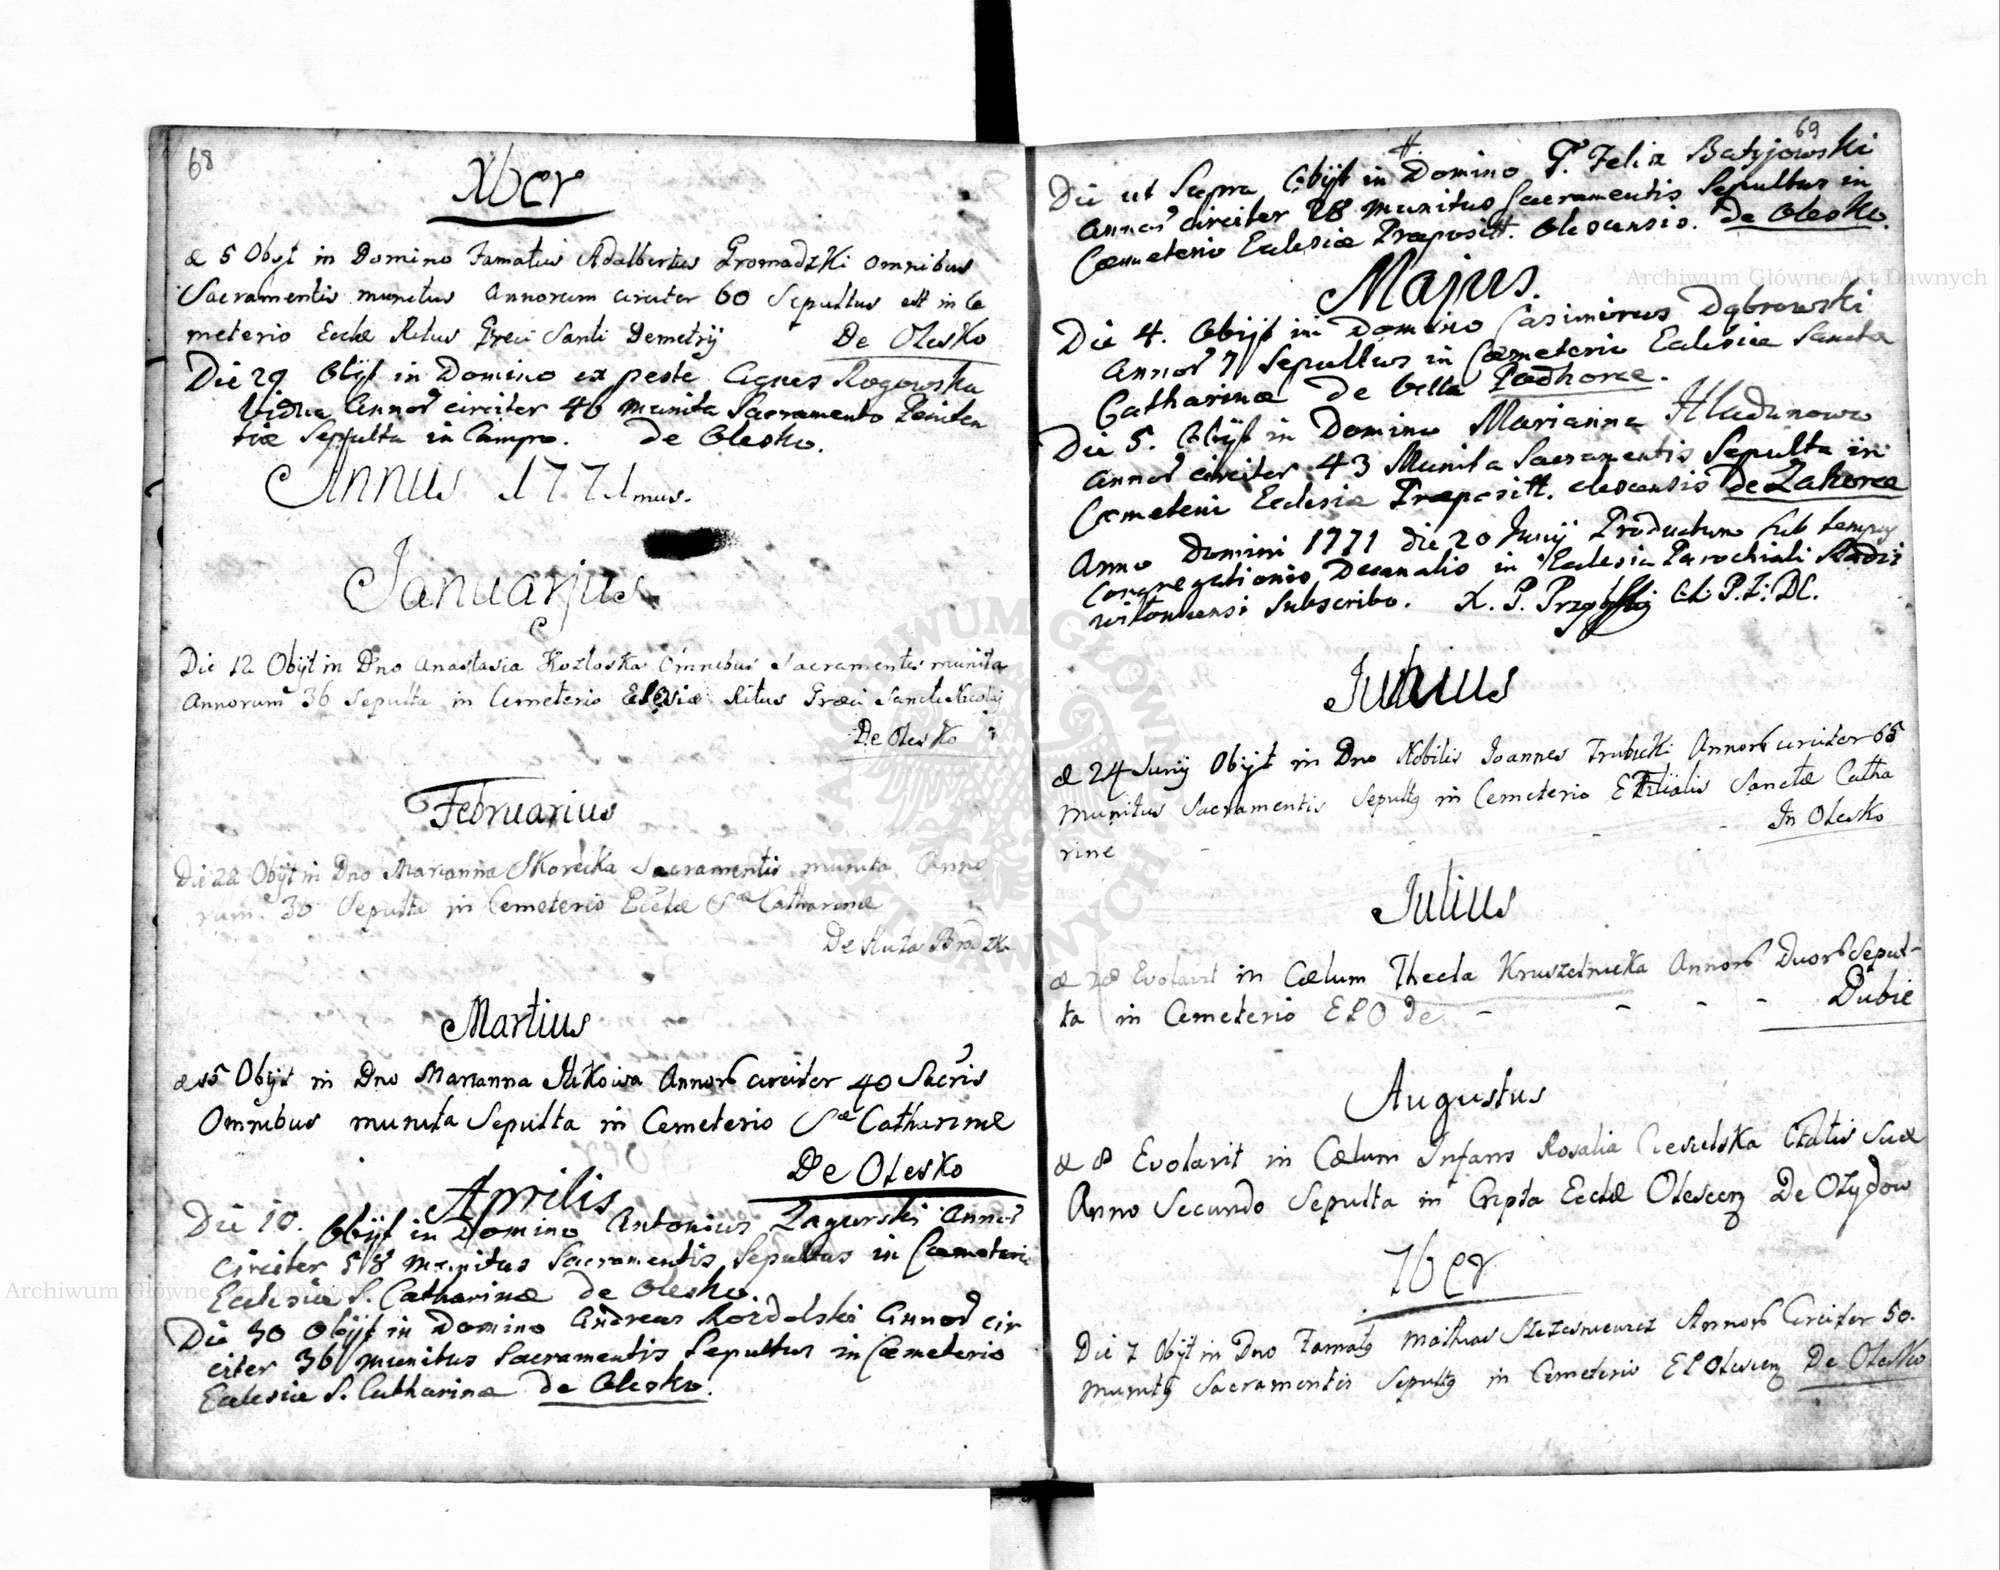 68
Xber
æ 5 Obyt in Domino Famatus Adalbertus Gromadzki omnibus
Sacramentis munitus Annorum circiter 60 Sepultus est in Ce
meterio Eccłæ Ritus Greci Santi Demetrÿ De Olesko
Die 29 Obÿt in Domino ex peste Agnes Rogowska
Vidua Annor circiter 40 munita Sacramento Peniten
tiæ Sepulta in Campo. de Olesko.
Annus 1771mus.
Januarjus
Die 12 Obÿt in Dno Anastasia Kozłoska Omnibus Sacramentis munita
Annorum 36 Sepulta in Cemeterio Ritus Græci Sancti Nicolaj
De Olesko
Februarius
Die 22 Obÿt in Dno Marianna Skorecka Sacramentis munita Anno
rum 30 Sepulta in Cemeterio Eccłæ Sæ Catharinæ
De Huta Brodzk
Martius
æ 15 Obyt in Dno Marianna Annor circiter 40 Sacris
Omnibus munita Sepulta in Cemeterio Sæ Catharinæ
De Olesko
Aprilis
Die 10. Obÿt in Domino Antonius Zagurski Annor
circiter 58 munitus Sacramentis Sepultus in Cæmeteri
Eclesiæ S. Catharinæ de Olesko.
Die 30 Obÿt in Domino Andreas Rozdolski Annor cir
citer 36 munitus Sacramentis Sepultus in Cæmeterio
Eclesiæ S. Catharinæ de Olesko.
69
Die ut Supra Obÿt in Domino G. Felix Batyjowski
Annor circiter 28 munitus Sacramentis Sepultus in
Cæmeterio Eclesiæ Præposit. Olescensis. De Olesko.
Majus.
Die 4. Obÿt in Domino Casimirus Dąbrowski
Annor 7 Sepultus in Cæmeterio Eclesiæ Sancta
Catharinæ De Podhorce.
Die 5. Obÿt in Domino Marianna Hładunowa
Annor circiter 43 Munita Sacramentis Sepulta in
Cæmeterii Eclesiæ Præposit. olescensis De Zahorce
Anno Domini 1771 die 20 Junÿ Productum sub tempus
Congregationis Decanalis in Eclesia Parochiali Stadis
subscribo. X. P.
Iunius
æ 24 Junÿ Obÿt in Dno Nobilis Joannes Trubicki Annor circiter 65
Munitus Sacramentis Sepult9 in Cemeterio Sanctæ Catha
rine In Olesko
Julius
æ 28 Evolavit in Cælum Thecla Kruszelnicka Annor Duor Sepul-
ta in Cemeterio E P O de - - - - Dubie
Augustus
æ 8 Evolavit in Cælum Infans Rosalia Ciesielska Etatis Suæ
Anno Secundo Sepulta in Cripta Eccłæ Olescen De Ożydow
7ber
Die 7 Obÿt in Dno Famat9 Mathias Annor Circiter 50.
Munit9 Sacramentis Sepult9 in Cemeterio E P Olescen De Olesko
Archiwum Główne Akt Dawnych
Archiwum Główne Akt Dawnych
ARCHIWUM GŁÓWNE AKT DAWNYCH